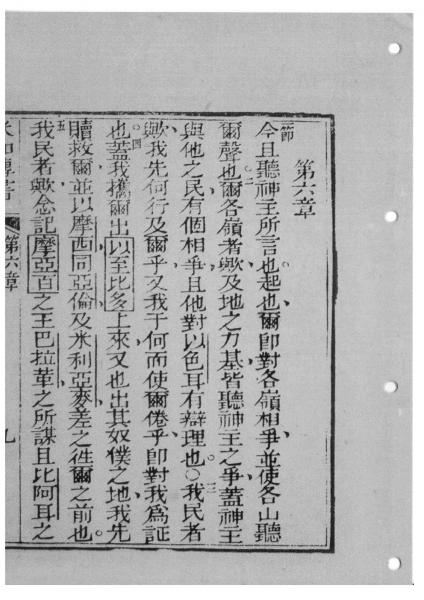 第六章
一節
今且聽神主所言也起也爾卽對各嶺相爭並使各山聽
爾聲也二爾各嶺者歟及地之力基皆聽神主之爭蓋神主
與他之民有個相爭且他對以色耳有辯理也○三我民者
歟我先何行及爾乎又我于何而使爾倦乎卽對我爲証
也○四蓋我攜爾出以至比多上來又也出其奴僕之地我先
贖救爾並以摩西同亞倫及米利亞麥差之徃爾之前也○
五我民者歟念記摩亞百之王巴拉革之所謀且比阿耳之
第六章
九